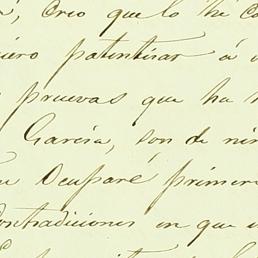 , Creo que lo he co
iero patentizar á
pruevas que ha
Garcia, son de nin
Ocuparé primera
Contradiciones en que